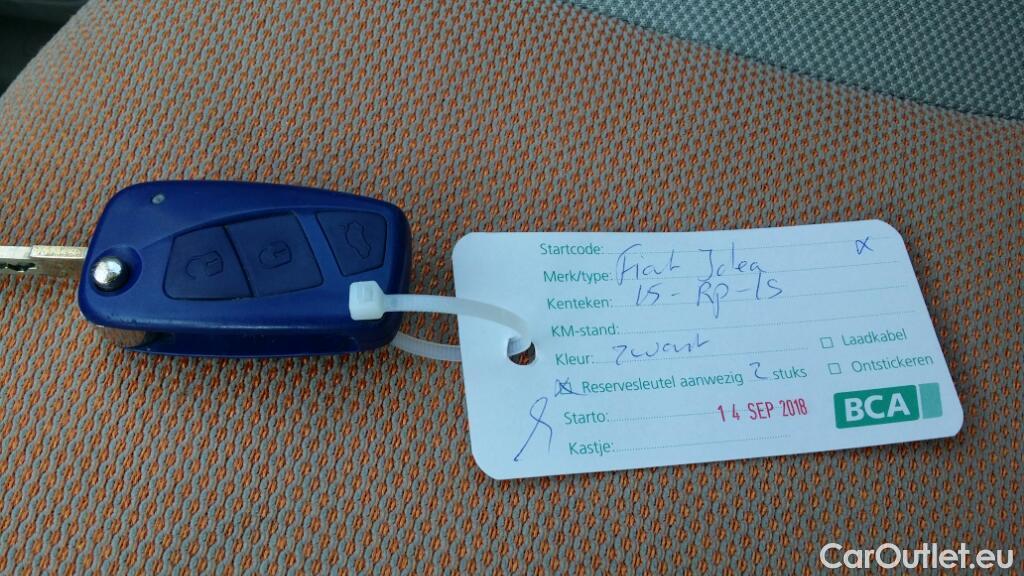 Startcode: x
Merk/type: Fiat Idea
Kenteken: 15-RP-15
KM-stand:
Kleur: zwart
Laadkabel
x Reservesleutel aanwezig 2 stuks
Ontstickeren
Starto: 14 SEP 2018
BCA
Kastje:
CarOutlet.eu